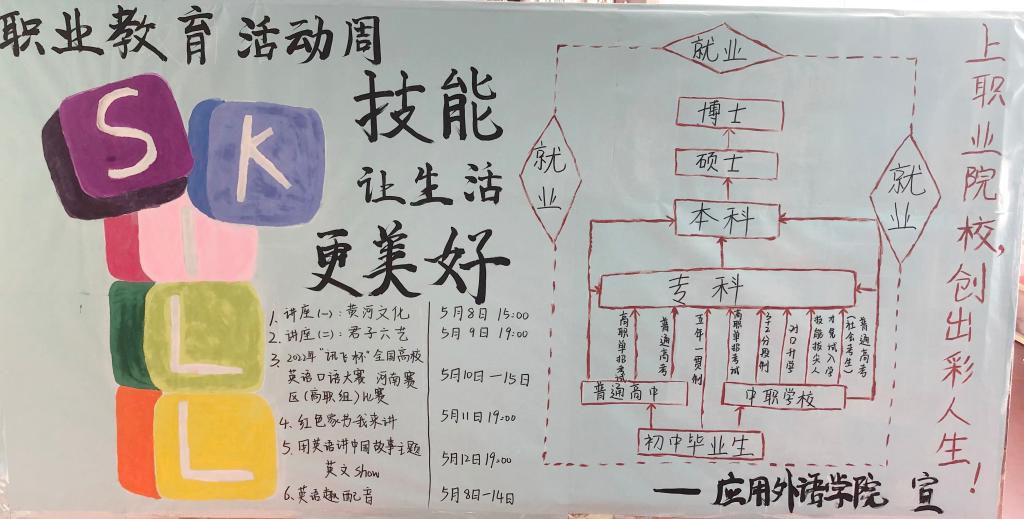 职业教育 活动周
S
K
I
L
L
技能
让生活
更美好
1. 讲座(一): 黄河文化 5月8日 15:00
2. 讲座(二): 君子六艺 5月9日 19:00
3. 2022年“讯飞杯”全国高校
英语口语大赛 河南赛
区(高职组)比赛 5月10日—15日
4. 红色家书我来讲 5月11日 19:00
5. 用英语讲中国故事主题
英文show 5月12日 19:00
6. 英语趣配音 5月8日—14日
就业
就业
就业
博士
硕士
本科
专科
高职单招考试
普通高考
五年一贯制
高职单招考试
对口升学
技能拔尖人
才免试入学
(社会考生)
普通高考
普通高中
中职学校
初中毕业生
上职业院校,创出彩人生!
—应用外语学院 宣